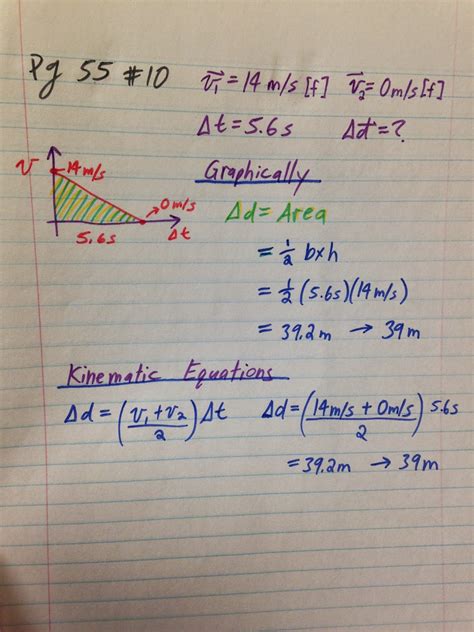 Pg 55 #10
v⃗₁ = 14 m/s [f]  v⃗₂ = 0 m/s [f]
Δt = 5.6s  Δd⃗ = ?
Graphically
v
14 m/s
0 m/s
5.6s
Δt
Δd = Area
= ½ bxh
= ½ (5.6s)(14 m/s)
= 39.2m → 39m
Kinematic Equations
Δd = ((v₁ + v₂)/2) Δt  Δd = ((14m/s + 0m/s)/2) 5.6s
= 39.2m → 39m